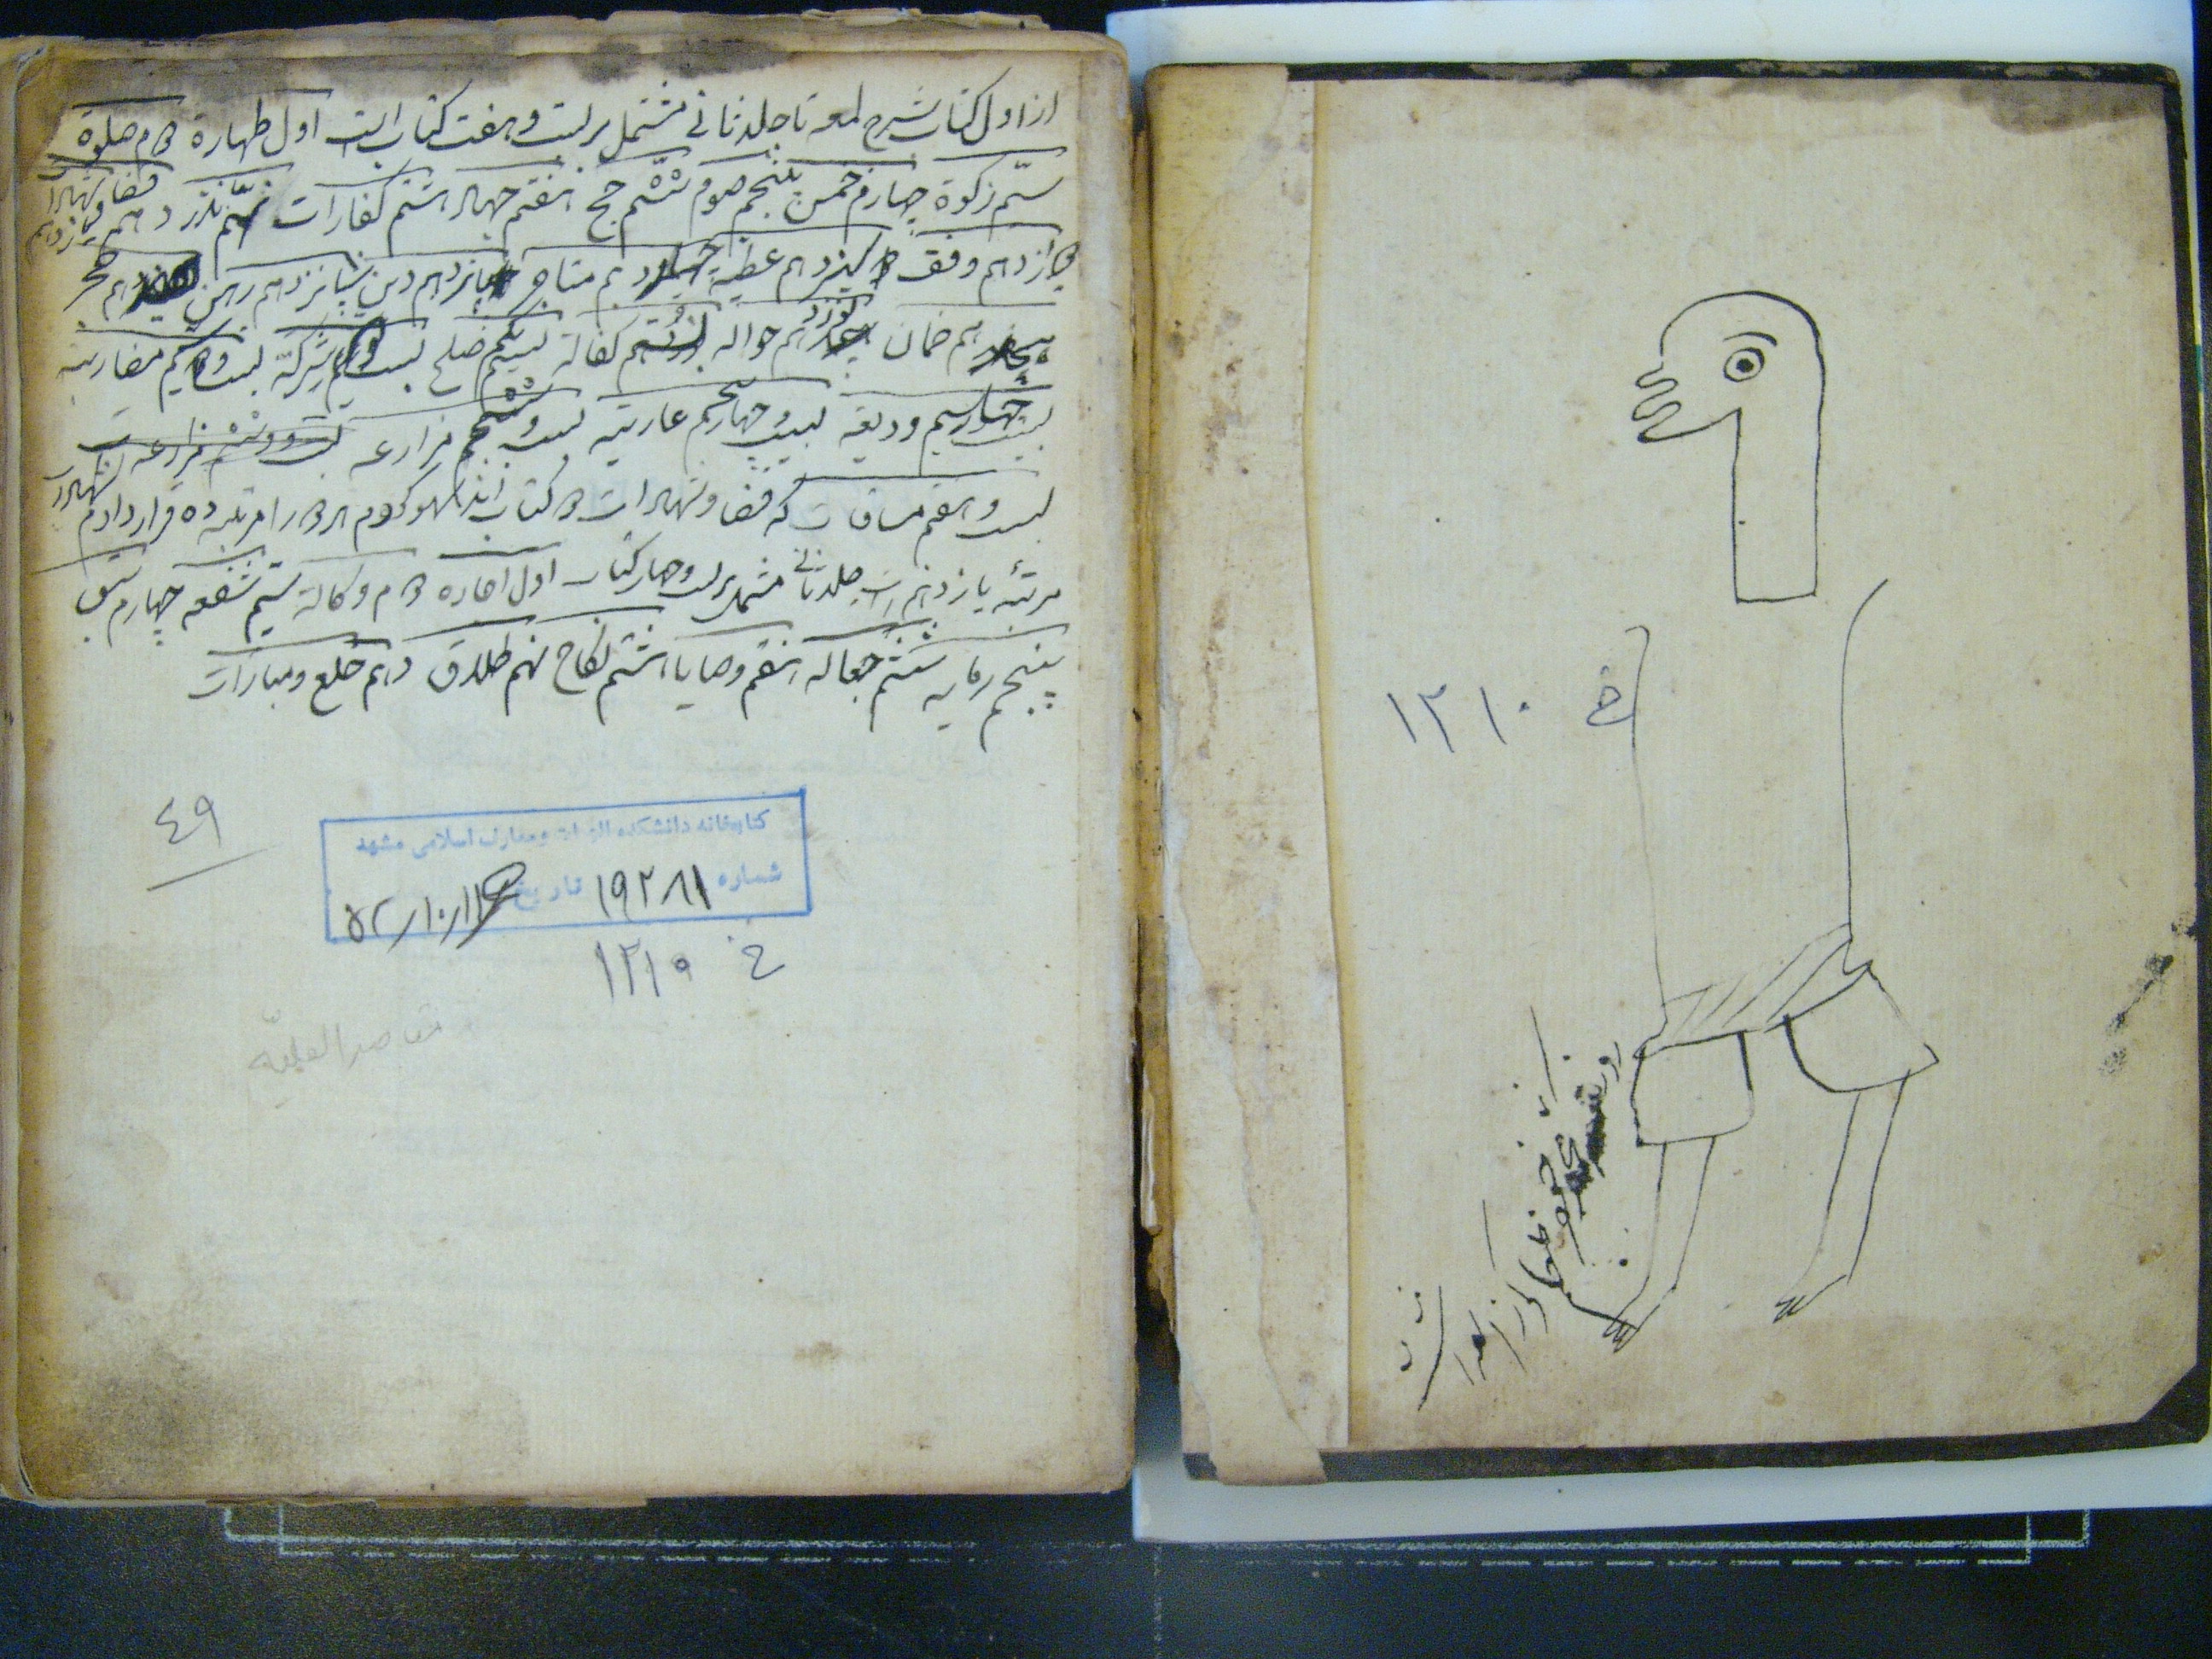 از اول کتاب شرح لمعه تا جلد ثانی مشتمل بر بیست و هفت کتاب است اول طهارة دوم صلوة
سیّم زکوة چهارم خمس پنجم صوم ششم حج هفتم جهاد هشتم کفارات نهم نذر دهم قضا
یازدهم
دوازدهم وقف سیزدهم عطیه چهاردهم متاجر پانزدهم دین شانزدهم رهن هفدهم حجر
هیجدهم ضمان نوزدهم حواله بیستم کفاله بیست یکم صلح بیست و دویم شرکة بیست و سیم مضاربه
بیست چهارم ودیعه بیست و پنجم عاریه بیست و ششم مزارعه
بیست و هفتم مساقات که قضا و شهادات دو کتاب اند سهو کردم هر دو را مرتبه ده قرار دادم شهادات
مرتبه یازدهم است جلد ثانی مشتمل بر بیست و چهار کتاب اول اجاره دوم وکالة سیّم شفعه چهارم سبق
پنجم رمایه ششم جعاله هفتم وصایا هشتم نکاح نهم طلاق دهم خلع و مبارات
٤٩
کتابخانه دانشکده الهیات و معارف اسلامی مشهد
شماره ۱۹۲۸۱ تاریخ
خ ۱۲۱۰
مقاصد العلیّه
خ ۱۲۱۰